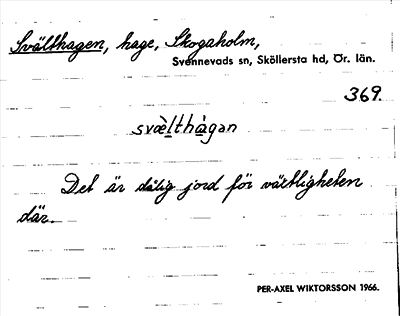 Svälthagen, hage, Skogaholm,
Svennevads sn, Sköllersta hd, Ör. län.
369.
svæ̀lthàgan
Det är dålig jord för växtligheten
där.
PER-AXEL WIKTORSSON 1966.